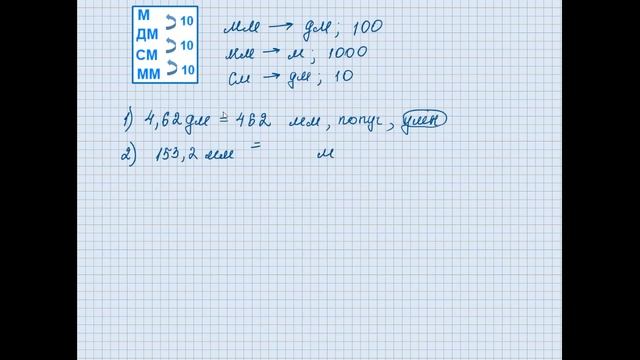 М
ДМ
СМ
ММ
10
10
10
мм → дм ; 100
мм → м ; 1000
см → дм ; 10
1) 4,62 дм = 462 мм, попуг, умн
2) 153,2 мм = м